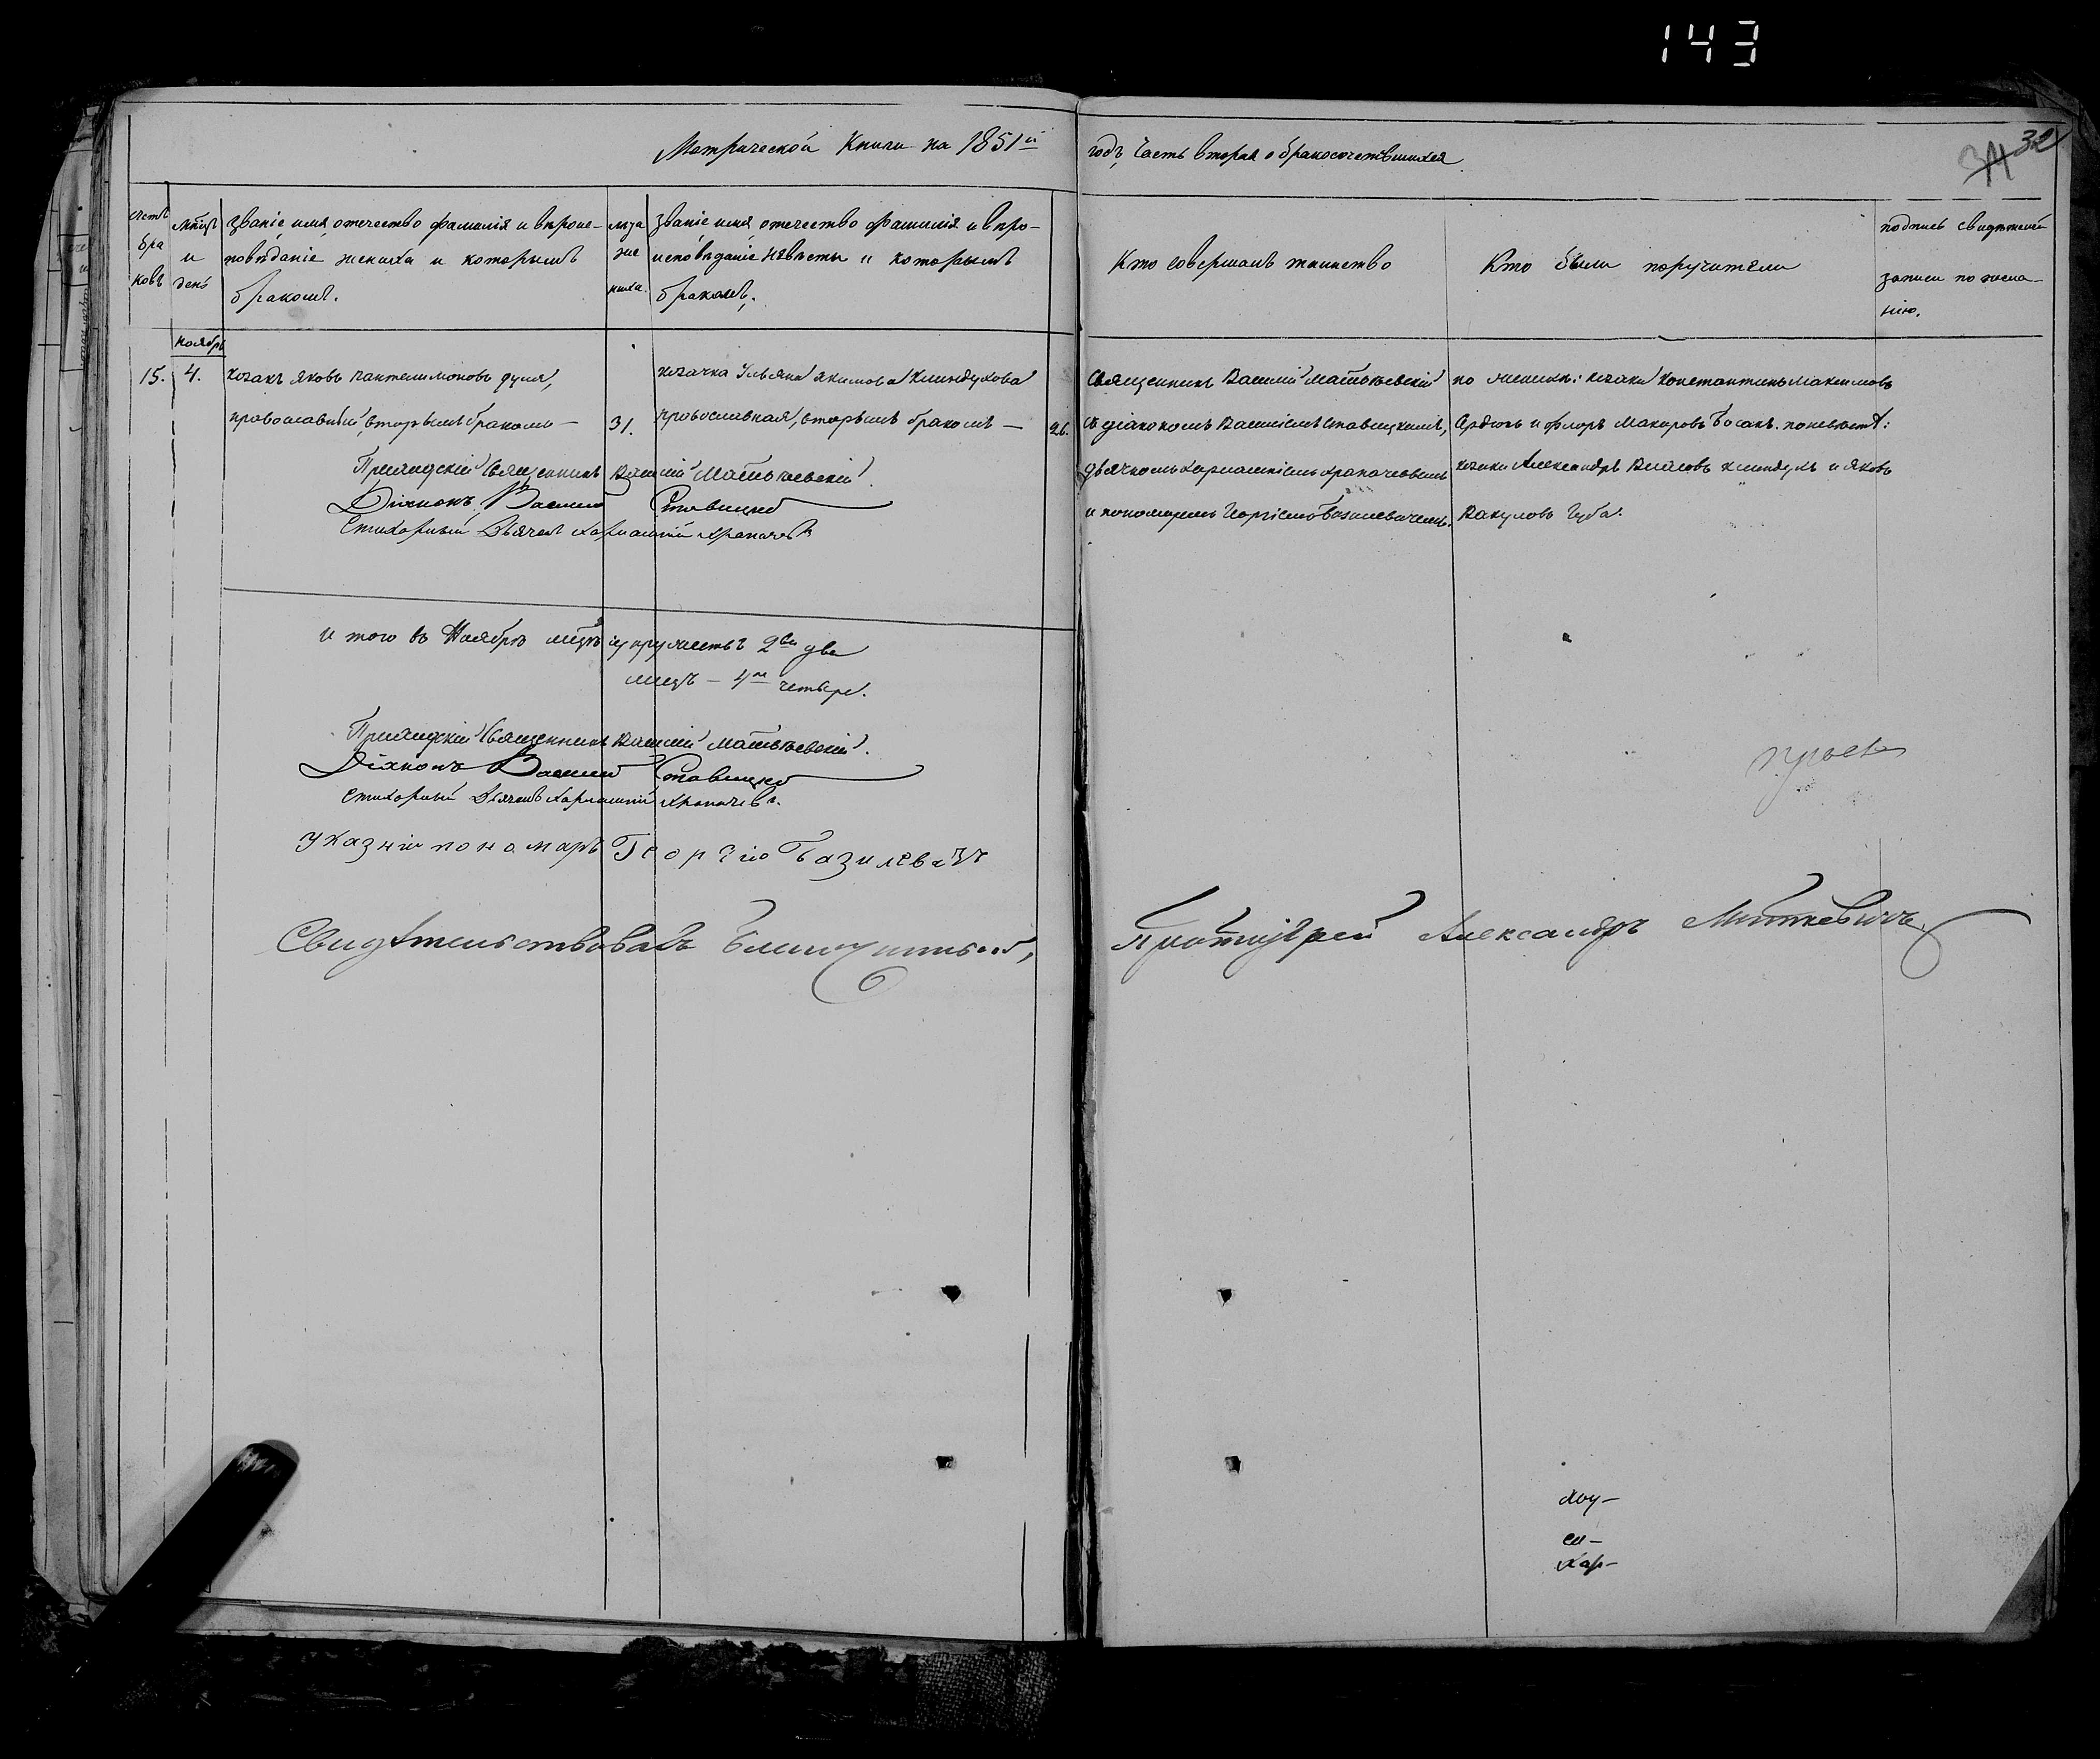 143
Метрической Книги на 1851й
годъ, Часть вторая о бракосочетавшихся
32
счетъ
бра
ковъ
мѣсяцъ
и
день
Званіе, имя, отечество, фамилія и вѣроис-
повѣданіе жениха и которымъ
бракомъ.
лѣта
же
ниха.
Званіе, имя, отечество, фамилія и вѣро-
исповѣданіе невѣсты и которымъ
бракомъ.
Кто совершалъ таинство
Кто были поручители
подпись свидѣтелей
записи по жела-
нію.
Ноябрь
15.
4.
козакъ Яковъ Пантелимоновъ Дуля,
православный, вторымъ бракомъ —
31.
козачка Ульяна Якимова Клиндухова
православная, вторымъ бракомъ —
26.
Священникъ Василій Матвѣевскій
съ діакономъ Василіемъ Ставицкимъ,
дьячкомъ Харлампіемъ Храпачевымъ
и пономаремъ Георгіемъ Базилевичемъ.
по женихѣ: козаки Константинъ Максимовъ
и Флоръ Макаровъ Босакъ. по невѣстѣ:
козаки Александръ Клиндухъ и Яковъ
Вакуловъ Чуба.
Приходскій Священникъ Василій Матвѣевскій.
Діаконъ Василій Ставицкій
Стихарный Дьячекъ Харлампій Храпачевъ
И того въ Ноябрѣ мѣсяцѣ супружествъ 2ва два
лицъ — 4ре четыре.
Приходскій Священникъ Василій Матвѣевскій.
Діаконъ Василій Ставицкій
Стихарный Дьячекъ Харлампій Храпачевъ.
Указній пономарь Георгій Базилевичъ
Свидѣтельствовалъ Благочинный,
Протоіерей Александръ Миткевичъ